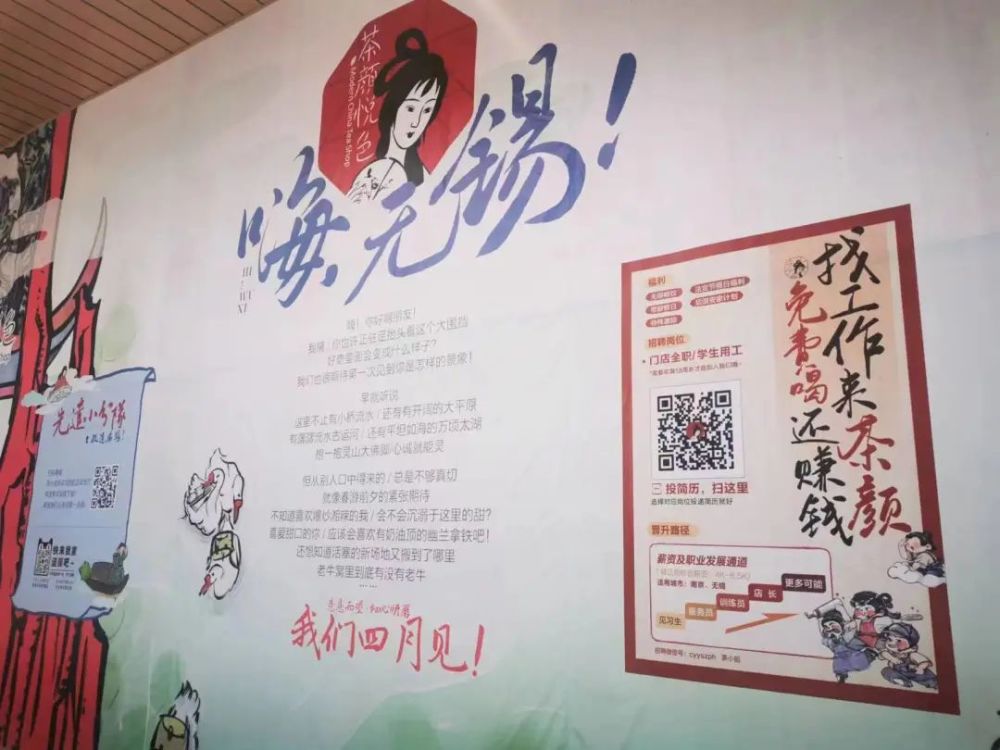 茶颜悦色
Modern China Tea Shop
嗨,无锡!
嗨!你好啊朋友!
我猜,你也许正驻足抬头看这个大围挡
好奇里面会变成什么样子?
我们也很期待第一次见到你是怎样的景像!
早就听说
这里不止有小桥流水/还有有开阔的大平原
有潺潺流水古运河/还有平坦如海的万顷太湖
抱一抱灵山大佛脚/心诚就能灵
但从别人口中得来的/总是不够真切
就像春游前夕的紧张期待
不知道喜欢爆炒相辣的我/会不会沉溺于这里的甜?
喜爱甜口的你/应该会喜欢有奶油顶的幽兰拿铁吧!
还想知道活塞的新场地又搬到了哪里
老牛窝里到底有没有老牛
……
我们四月见!
先遣小分队
找工作来茶颜
免费喝还赚钱
福利
法定节假日福利
招聘岗位
门店全职/学生用工
投简历,扫这里
选择对应岗位投递简历就好
晋升路径
薪资及职业发展通道
适用城市:南京、无锡
见习生
服务员
训练员
店长
更多可能
招聘微信号:cyyszph 茶小招